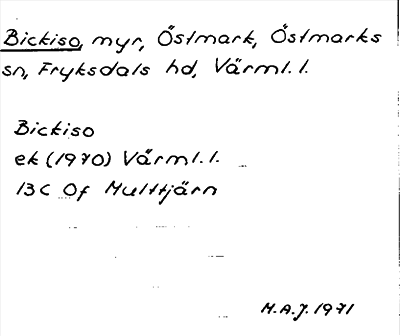 Bickiso, myr, Östmark, Östmarks
sn, Fryksdals hd, Värml. l.
Bickiso
ek (1970) Värml. l.
13C Of Multtjärn
M.A.J. 1971